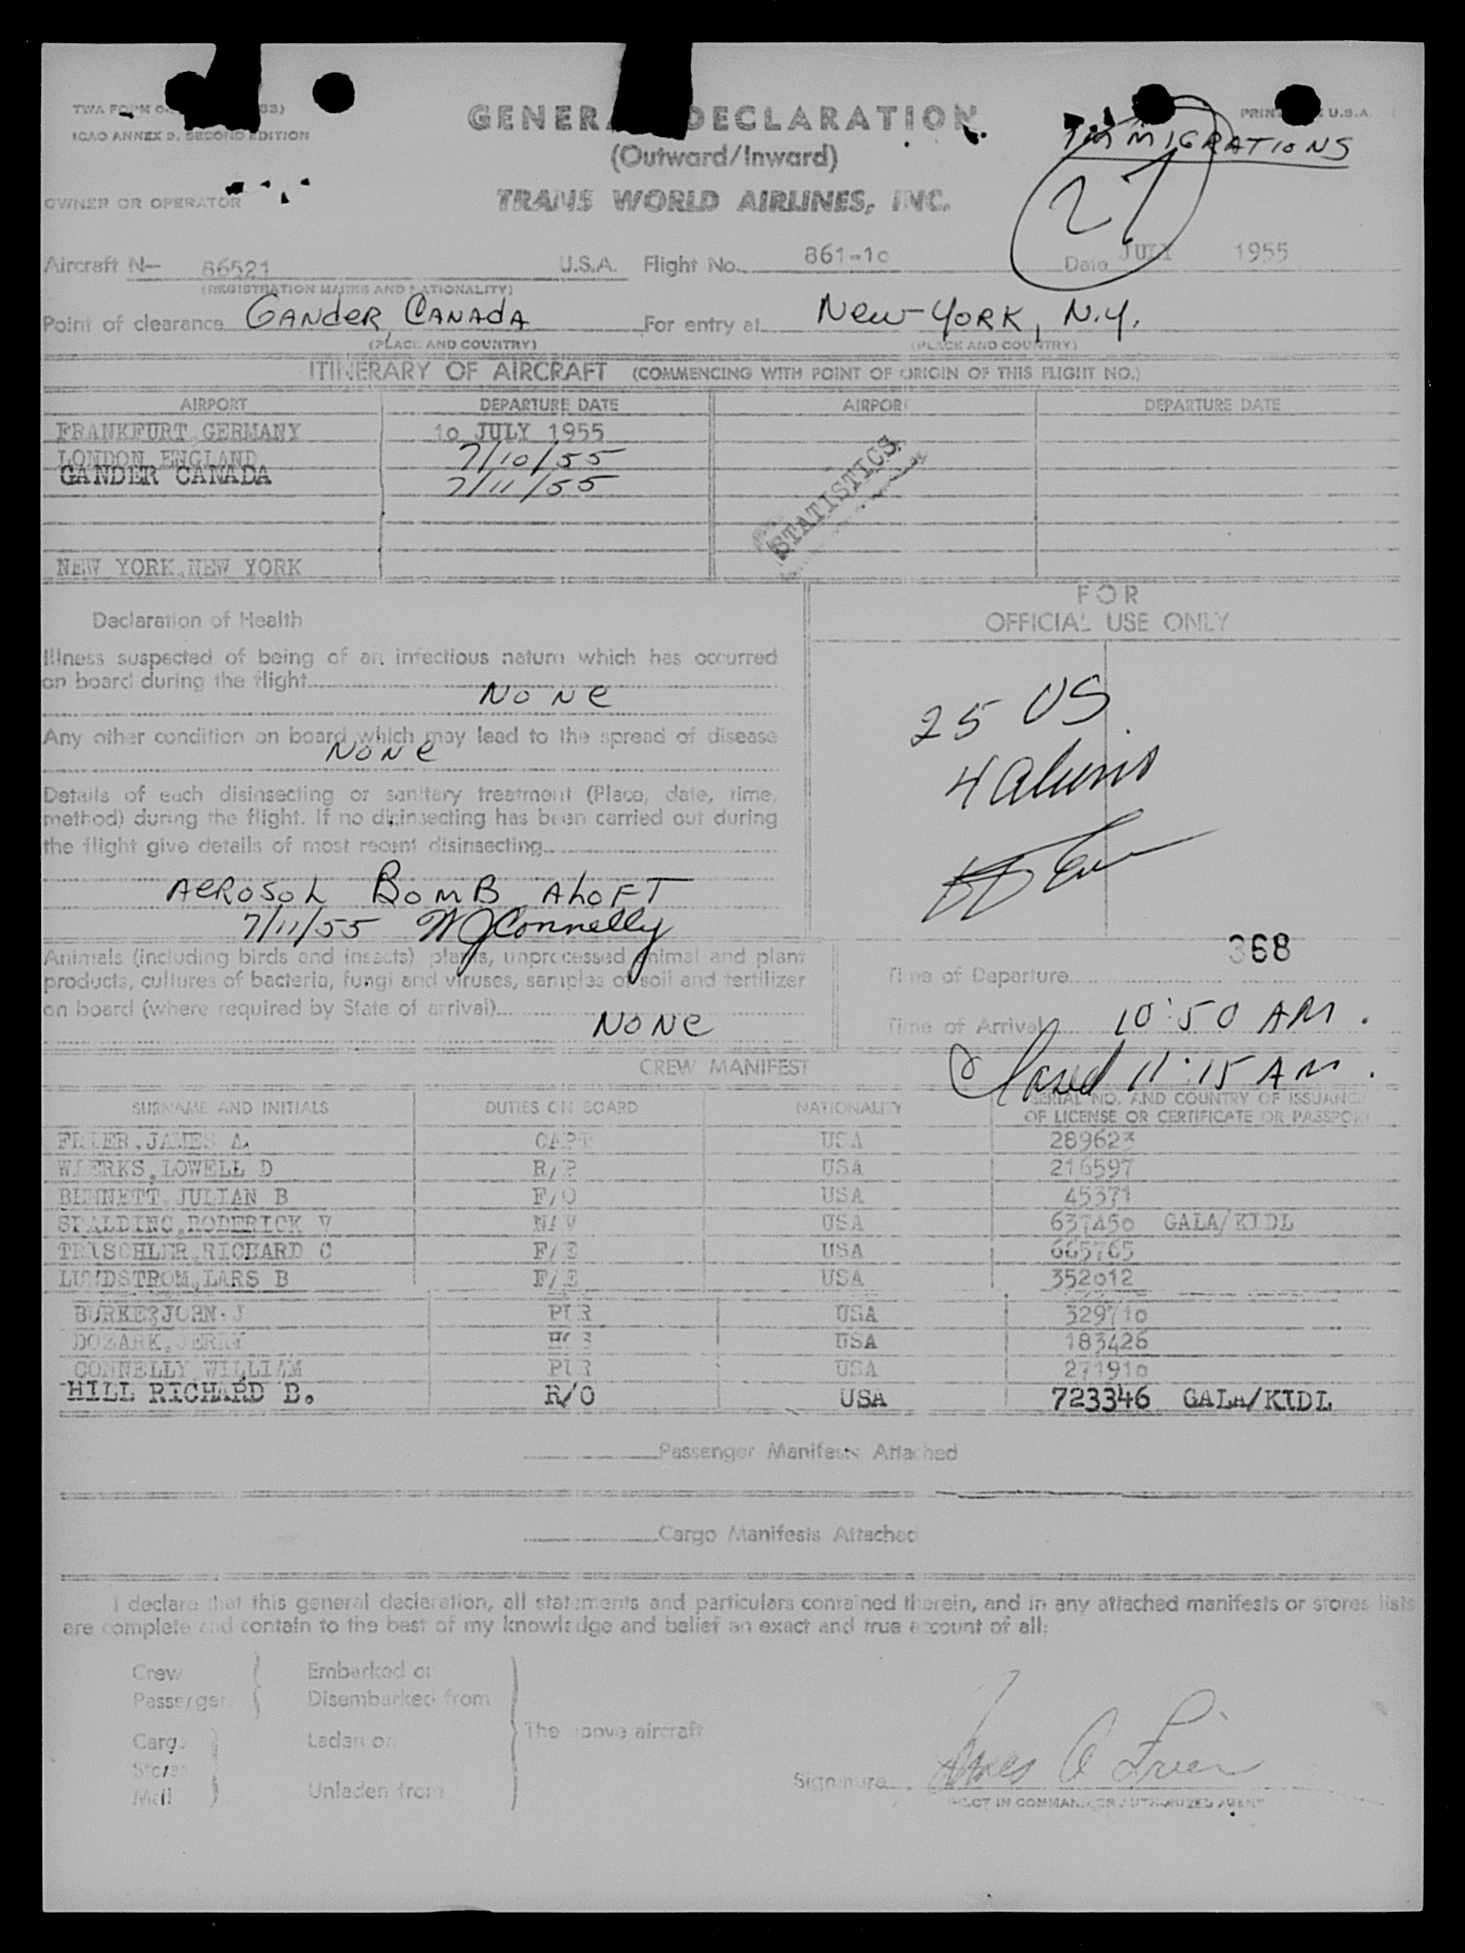 TWA FORM
ICAO ANNEX 9, SECOND EDITION
GENERAL DECLARATION
(Outward/Inward)
TRANS WORLD AIRLINES, INC.
PRINTED U.S.A.
IMMIGRATIONS
27
OWNER OR OPERATOR
Aircraft N— 86521 U.S.A. Flight No. 861-10 Date JULY 1955
(REGISTRATION MARKS AND NATIONALITY)
Point of clearance GANDER, CANADA For entry at New-York, N.Y.
(PLACE AND COUNTRY) (PLACE AND COUNTRY)
ITINERARY OF AIRCRAFT (COMMENCING WITH POINT OF ORIGIN OF THIS FLIGHT NO.)
AIRPORT DEPARTURE DATE AIRPORT DEPARTURE DATE
FRANKFURT, GERMANY 10 JULY 1955
LONDON ENGLAND 7/10/55
GANDER CANADA 7/11/55
STATISTICS
NEW YORK, NEW YORK
Declaration of Health
FOR
OFFICIAL USE ONLY
Illness suspected of being of an infectious nature which has occurred
on board during the flight
None
Any other condition on board which may lead to the spread of disease
None
25 US
4 aliens
Details of each disinsecting or sanitary treatment (Place, date, time,
method) during the flight. If no disinsecting has been carried out during
the flight give details of most recent disinsecting
AEROSOL BOMB ALOFT
7/11/55 WJ Connelly
Animals (including birds and insects) plants, unprocessed animal and plant
products, cultures of bacteria, fungi and viruses, samples of soil and fertilizer
on board (where required by State of arrival)
None
368
Time of Departure
Time of Arrival 10:50 AM.
Closed 11:15 AM.
CREW MANIFEST
SURNAME AND INITIALS DUTIES ON BOARD NATIONALITY SERIAL NO. AND COUNTRY OF ISSUANCE
OF LICENSE OR CERTIFICATE OR PASSPORT
FRIER, JAMES A. CAPT USA 289623
WIERKS, LOWELL D R/P USA 216597
BENNETT JULIAN B F/O USA 45371
SPALDING, RODERICK V NAV USA 637450 GALA/KIDL
RICHARD C F/E USA 665765
LUNDSTROM, LARS B F/E USA 352012
BURKE, JOHN J PUR USA 329710
DOZARK, JERRY USA 183426
CONNELLY WILLIAM PUR USA 271910
HILL RICHARD B. R/O USA 723346 GALA/KIDL
Passenger Manifests Attached
Cargo Manifests Attached
I declare that this general declaration, all statements and particulars contained therein, and in any attached manifests or stores lists
are complete and contain to the best of my knowledge and belief an exact and true account of all:
Crew
Passenger
Embarked on
Disembarked from
Cargo
Stores
Mail
Laden on
Unladen from
The above aircraft
Signature James A Frier
PILOT IN COMMAND OR AUTHORIZED AGENT